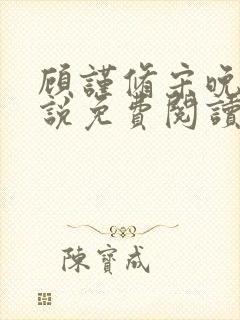 顾謹脩宋晚
說免費閱讀
陳寶成